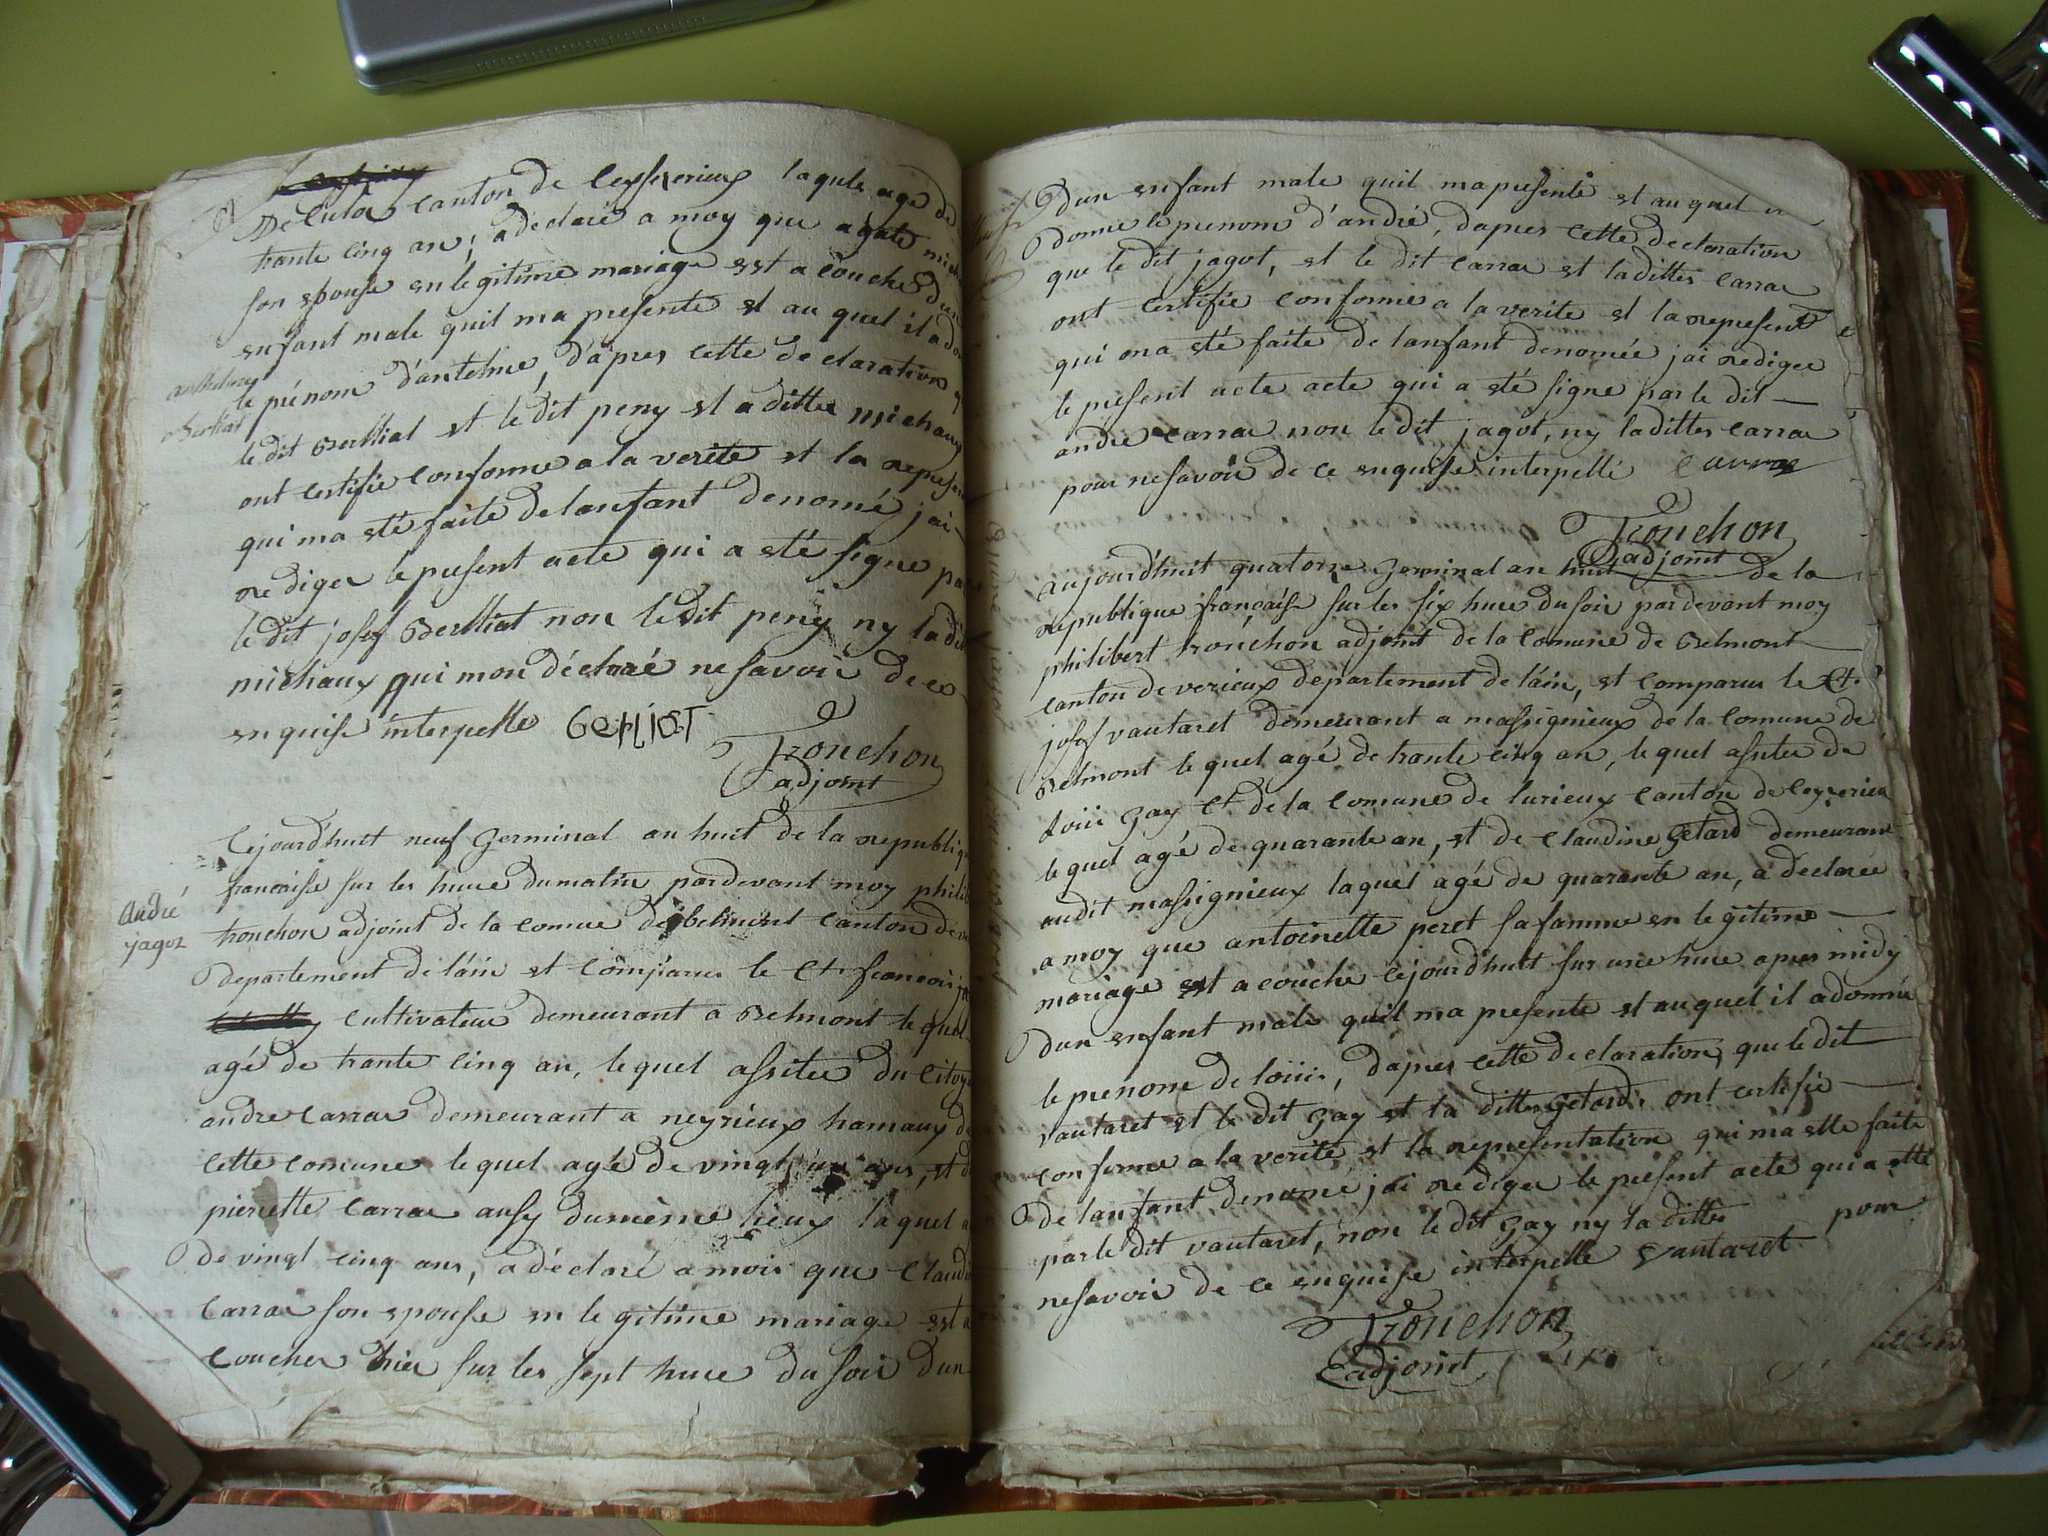 De Culoz canton de Ceyserieux laquele age de
trante cinq an, a declaré a moy que agate
son epouse en legitime mariage est a couche dun
enfant male quil ma presente et au quel il a
anthelme
le prénom d'antelme, dapres cette declaration
Berlliat
le dit Berlliat et le dit peny et a ditte michaux
ont certifie conforme a la verite et la
qui ma eté faite de lanfant denomé jai
rediger le present acte qui a eté signe par
le dit josef Berlliat non le dit peny ny la
michaux qui mon déclaré ne savoir de ce
enquise interpelle BERLIAT
Tronchon
adjoint
Cejourdhuit neuf Germinal an huit de la republique
francaise sur les hure du matin pardevant moy
André
jagoz
tronchon adjoint de la comue de belmont canton de
departement de lain et comparu le Ct francois
cultivateur demeurant a Belmont le quel
agé de trante cinq an, le quel assitee du
andre carrae demeurant a neyrieux hamaux
cette comune le quel agé de vingt un ans, et
pierrette carrae ausy dumème lieux laquel
de vingt cinq ans, a déclaré a mois que
Carrae son epouse en le gitime mariage est a
coucher hier sur les sept hure du soir dun
dun enfant male quil ma presenté et au quel
donne le prenom d'andré, dapres cette declaration
que le dit jagot, et le dit carrae et la dittes carrae
ont certifie conforme a la verite et la
qui ma eté faite de lanfant denomée jai rediger
le present acte acte qui a eté signe par le dit
andre carrae non le dit jagot, ny la dittes carrae
pour ne savoir de ce enquise interpellé carraz
Tronchon
adjoint
aujourdhuit quatorze Germinal an huit de la
republique française sur les six hure du soir pardevant moy
philibert tronchon adjoint de la comune de Belmont
canton de verieux departement de lain, et comparu le Ct
josef vautaret demeurant a massignieux de la comune de
Belmont le quel agé de trante cinq an, le quel assitee de
Loiii gay Ct de la comune de lurieux canton de
le quel agé de quarante an, et de claudine getard demeurant
audit massignieux laquel agé de quarante an, a declaree
a moy que antoinette peret sa famme en legitime
mariage est a couche cejourdhuit sur une hure apres midy
dun enfant male quil ma presente et auquel il a donnée
le prenome de loiii, dapres cette declaration que le dit
vautaret et le dit gay et la ditte getard, ont certifie
conforme a la verité et la representation qui ma ette faite
de lanfant denomé jai rediger le present acte qui a etté
par le dit vautaret, non le dit gay ny la ditte pour
ne savoir de ce enquise interpelle vautaret
Tronchon
adjoint